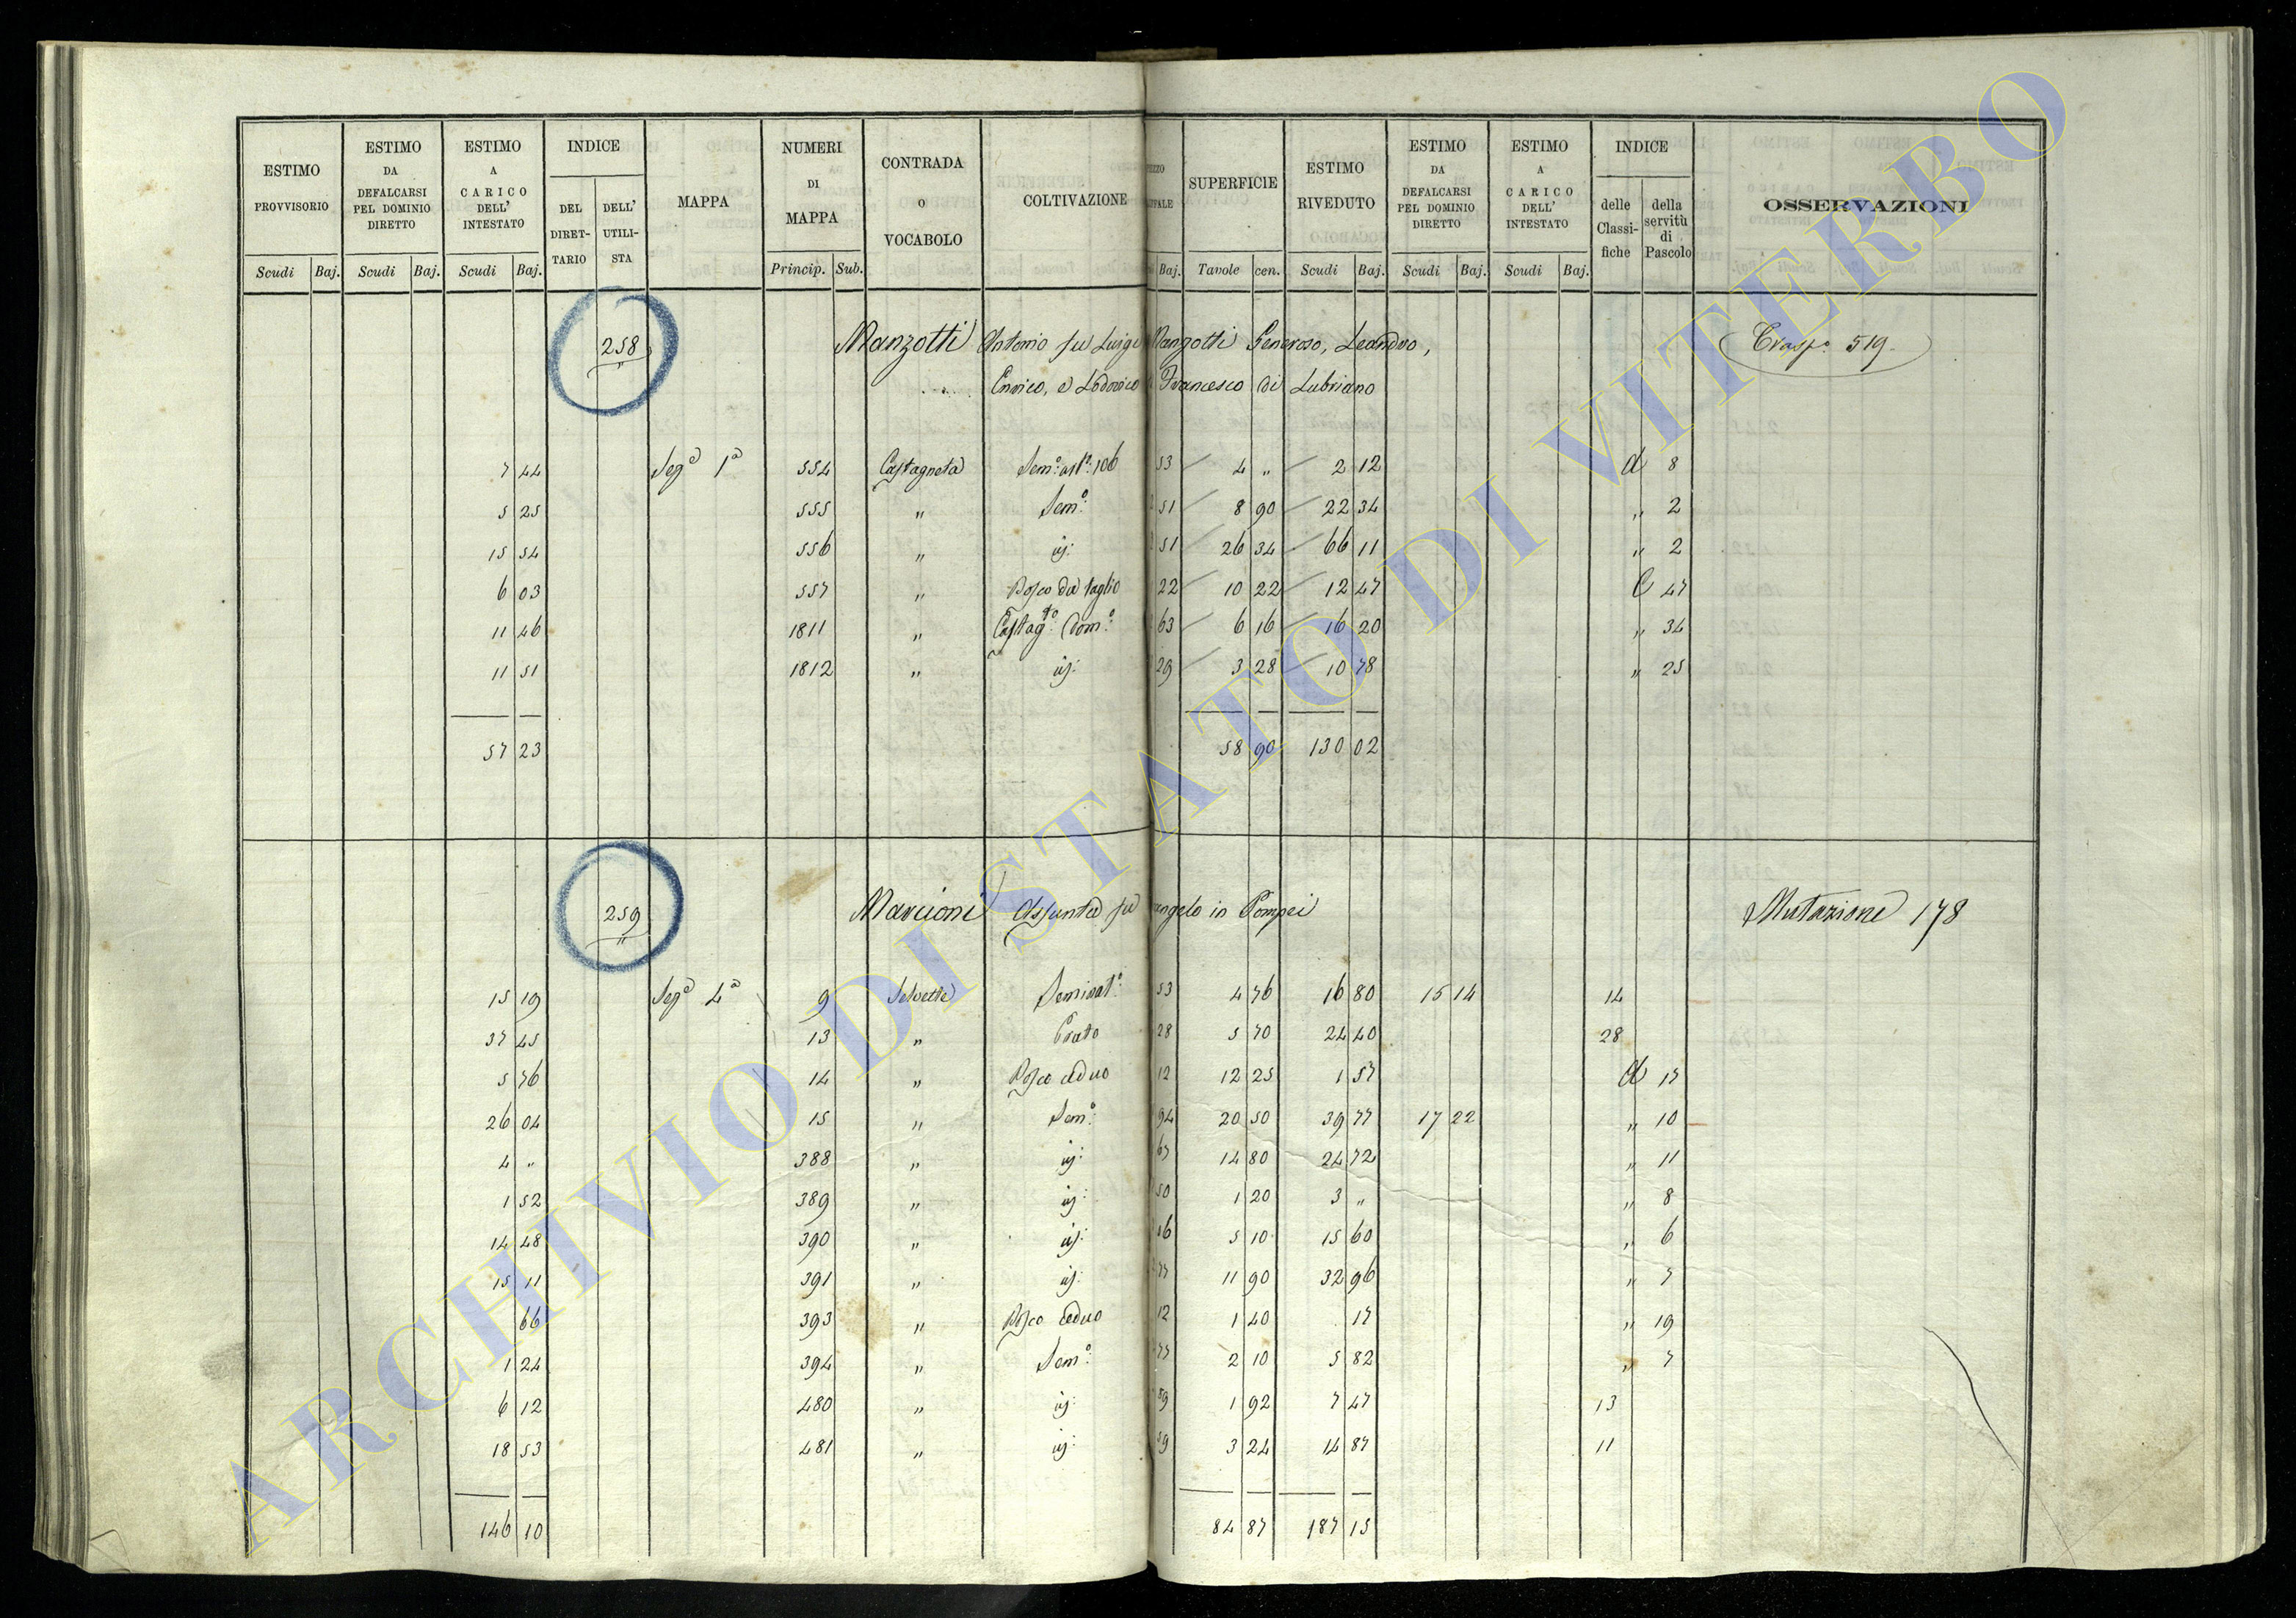 ESTIMO PROVVISORIO | ESTIMO DA DEFALCARSI PEL DOMINIO DIRETTO | ESTIMO A CARICO DELL' INTESTATO | INDICE DEL DIRET-TARIO | DELL' UTILI-STA | MAPPA | NUMERI DI MAPPA | CONTRADA O VOCABOLO | COLTIVAZIONE | SUPERFICIE | ESTIMO RIVEDUTO | ESTIMO DA DEFALCARSI PEL DOMINIO DIRETTO | ESTIMO A CARICO DELL' INTESTATO | INDICE delle Classi-fiche | della servitù di Pascolo | OSSERVAZIONI
Scudi Baj. Scudi Baj. Scudi Baj. Princip. Sub. Baj. Tavole cen. Scudi Baj. Scudi Baj. Scudi Baj.
258 Manzotti Antonio fu Luigi Manzotti Generoso, Leandro, 519
Enrico, e Lodovico Francesco di Lubriano
7 44 Seg.e 1a 554 Castagneta 53 4 " 2 12 d 8
5 25 555 " Sem.o 51 8 90 22 34 " 2
15 54 556 " id: 51 26 34 66 11 " 2
6 03 557 " Bosco da taglio 22 10 22 12 47 C 47
11 46 1811 " Castag.to Dom.o 63 6 16 16 20 " 34
11 51 1812 " id: 29 3 28 10 78 " 25
57 23 58 90 130 02
259 Marcioni Assunta fu angelo in Pompei Mutazione 178
15 19 Seg.e 4a 9 Selvette Seminat.o 53 4 76 16 80 15 14 14
37 45 13 " Prato 28 5 70 24 40 28
5 76 14 " Bosco ceduo 12 12 25 1 57 d 17
26 04 15 " Sem.o 94 20 50 39 77 17 22 " 10
4 " 388 " id: 67 14 80 24 72 " 11
1 52 389 " id: 50 1 20 3 " " 8
14 48 390 " id: 06 5 10 15 60 " 6
15 11 391 " id: 77 11 90 32 96 " 7
66 393 " Bosco ceduo 12 1 40 17 " 19
1 24 394 " Sem.o 77 2 10 5 82 " 7
6 12 480 " id: 89 1 92 7 47 13
18 53 481 " id: 59 3 24 14 87 11
146 10 84 87 187 15
ARCHIVIO DI STATO DI VITERBO